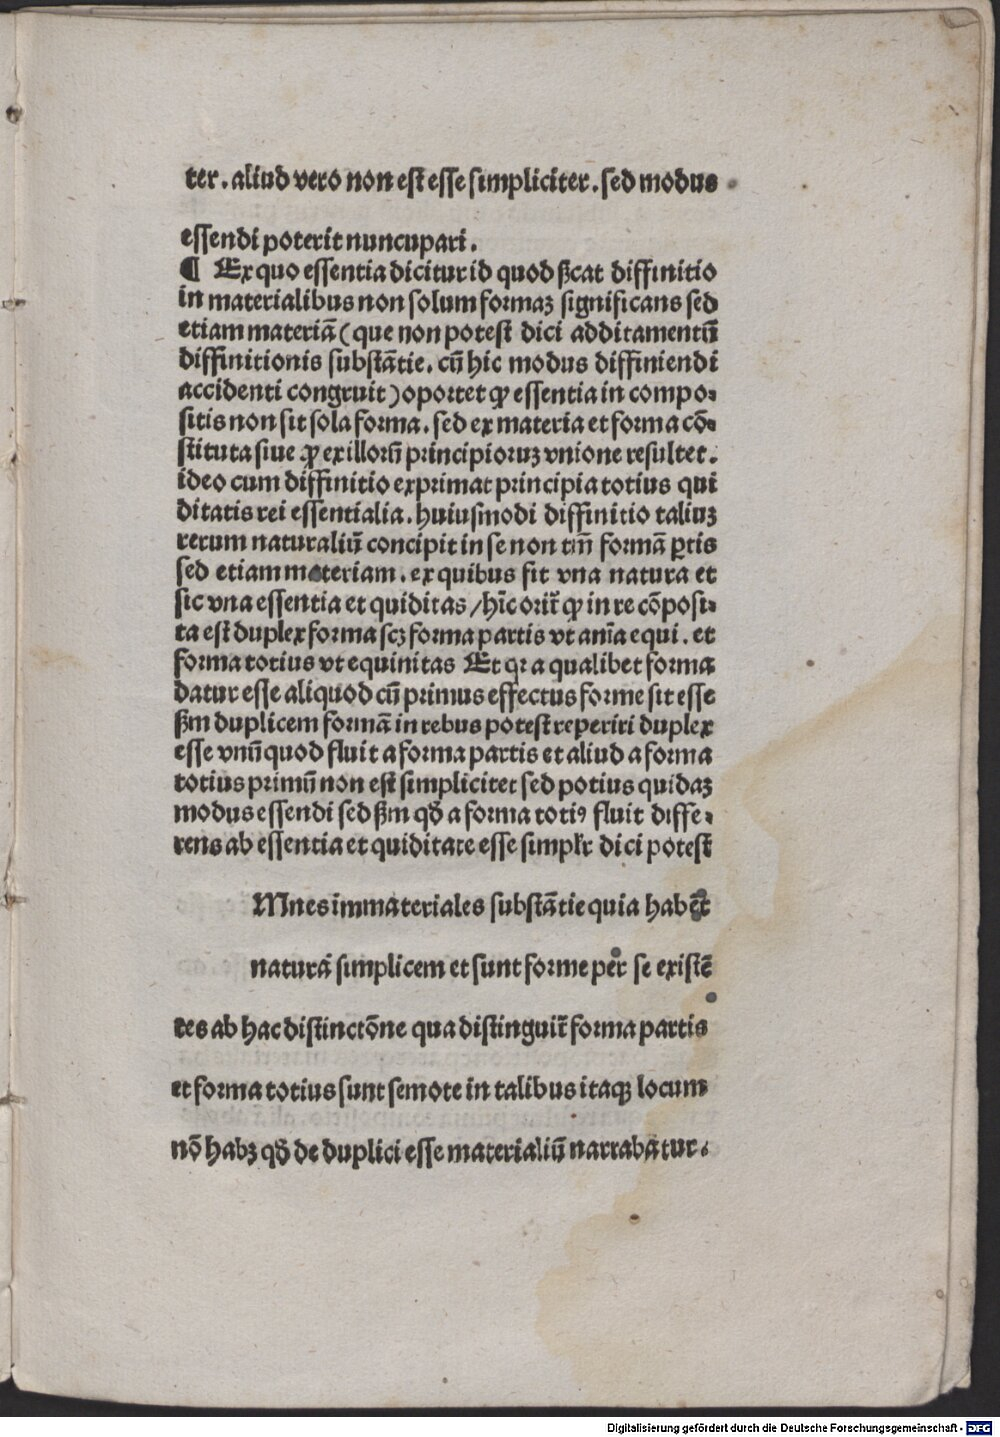 ter. aliud vero non est esse simpliciter. sed modus
essendi poterit nuncupari.
¶ Ex quo essentia dicitur id quod ßcat diffinitio
in materialibus non solum formaꝫ significans sed
etiam materiā (que non potest dici additamentū
diffinitionis substātie. cū hic modus diffiniendi
accidenti congruit) oportet ꝙ essentia in compo⸗
sitis non sit sola forma. sed ex materia et forma cō⸗
stituta siue ꝙ ex illorū principioruꝫ vnione resultet.
ideo cum diffinitio exprimat principia totius qui
ditatis rei essentialia. huiusmodi diffinitio taliuꝫ
rerum naturaliū concipit in se non tm̄ formā ꝑtis
sed etiam materiam. ex quibus fit vna natura et
sic vna essentia et quiditas /hīc orit̄ ꝙ in re cōposi⸗
ta est duplex forma scꝫ forma partis vt aīa equi. et
forma totius vt equinitas Et qꝛ a qualibet forma
datur esse aliquod cū primus effectus forme sit esse
ßm duplicem formā in rebus potest reperiri duplex
esse vnū quod fluit a forma partis et aliud a forma
totius primū non est simpliciter sed potius quidaꝫ
modus essendi sed ßm qđ a forma totiꝰ fluit diffe⸗
rens ab essentia et quiditate esse simplr̄ dici potest
Mnes immateriales substātie quia habēt
naturā simplicem et sunt forme per se existē
tes ab hac distinctōne qua distinguit̄ forma partis
et forma totius sunt semote in talibus itaqꝫ locum
nō habꝫ qđ de duplici esse materialiū narrabatur.
Digitalisierung gefördert durch die Deutsche Forschungsgemeinschaft - DFG